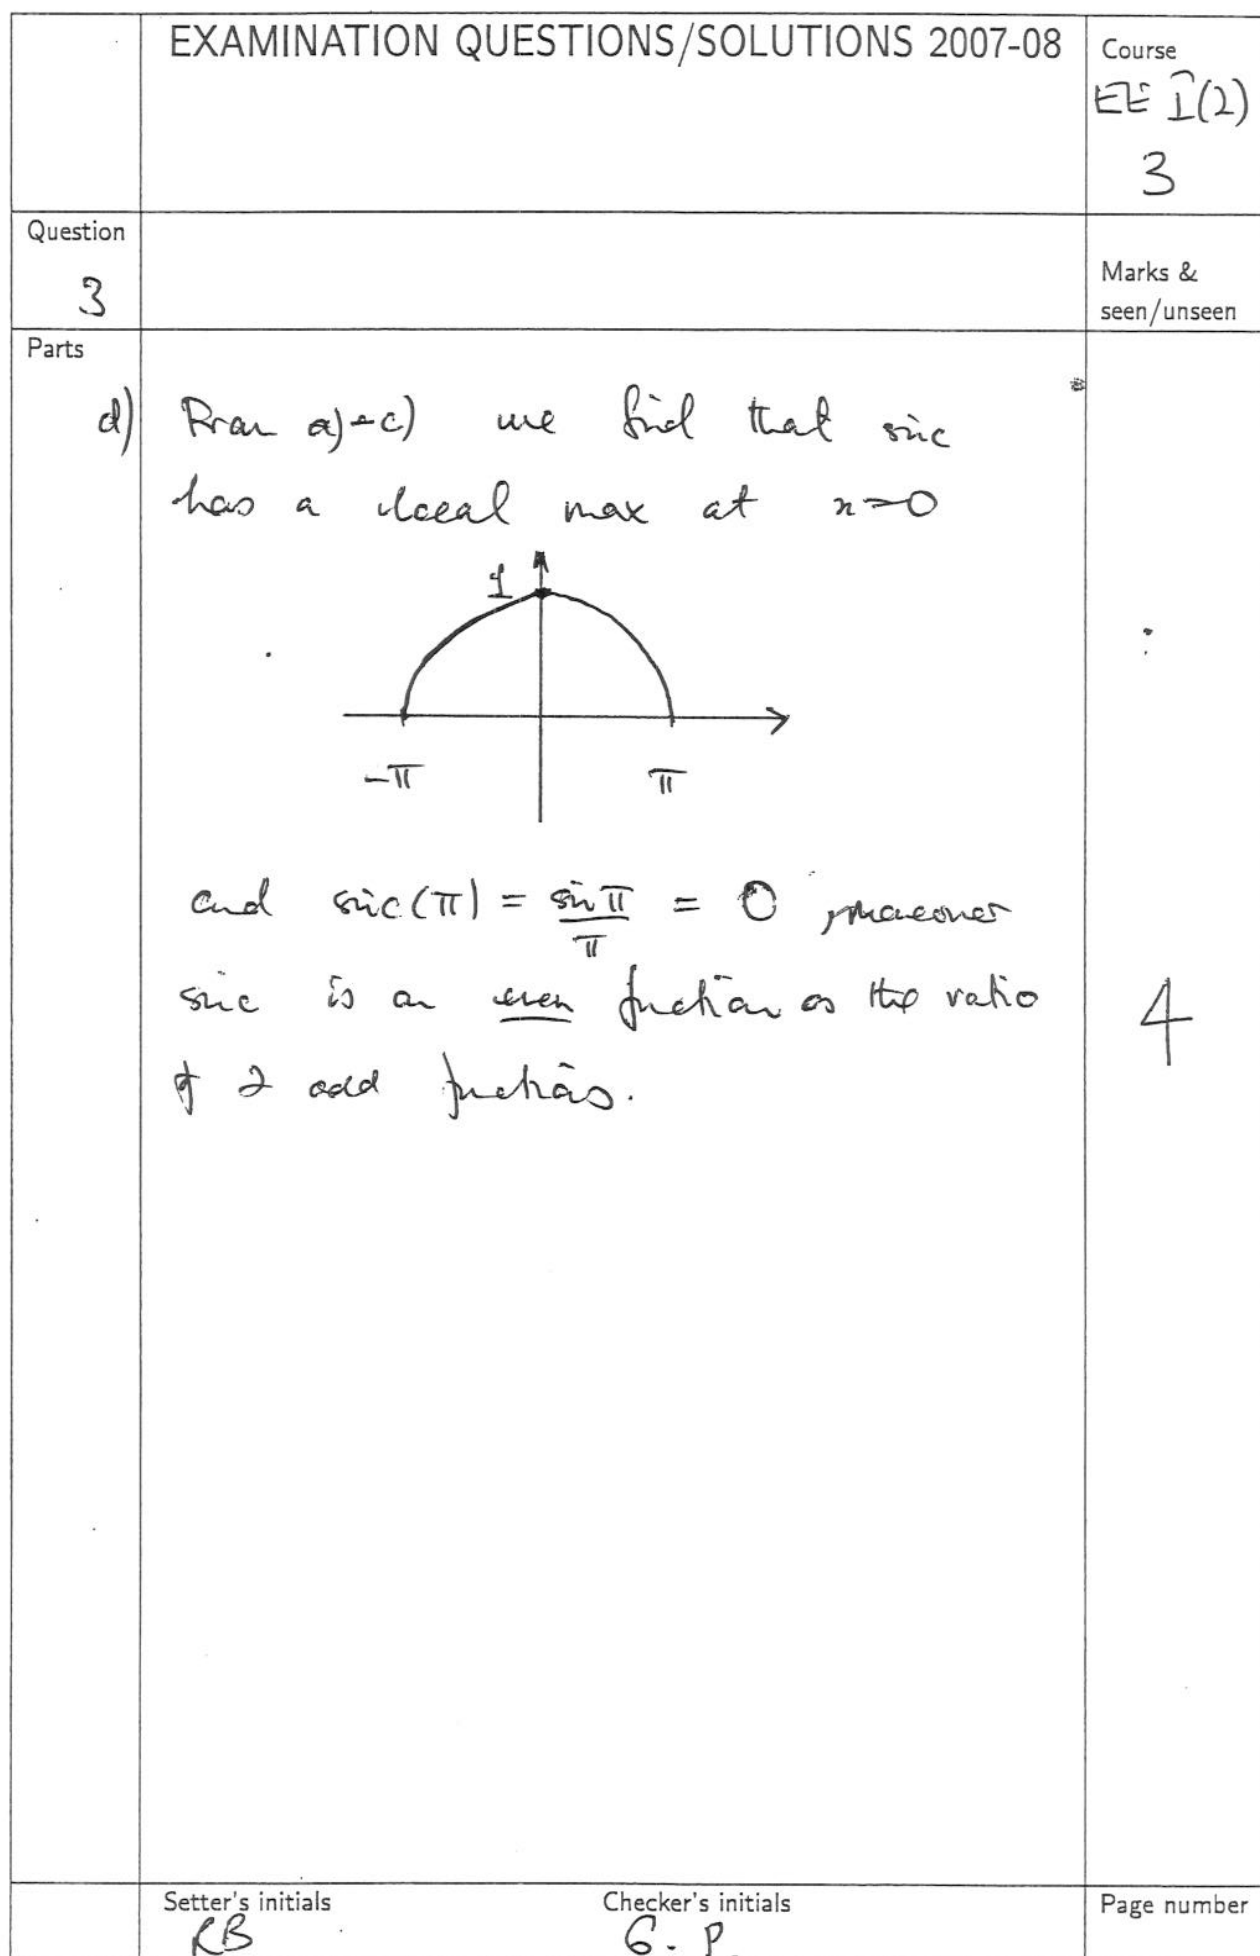 EXAMINATION QUESTIONS/SOLUTIONS 2007-08
Course
EE I(2)
3
Question
3
Marks &
seen/unseen
Parts
d) From a)-c) we find that sinc
has a local max at x=0
1
-π π
and sinc(π) = sin π / π = 0, moreover
sinc is an even function as the ratio
of 2 odd functions.
4
Setter's initials
RB
Checker's initials
G. P.
Page number